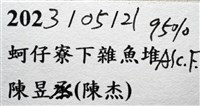 2023105121 95%
蚵仔寮下雜魚堆Alc.F.
陳昱丞(陳杰)